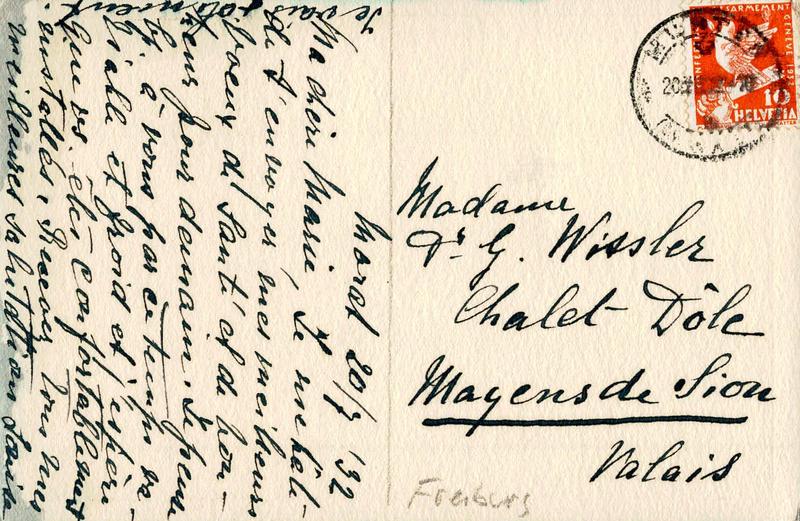 Je vais
totment.
Morat 20/7 '32
Ma chère Marie, Je me hâte
de t'envoyer mes meilleurs
voeux de Santé et de bon-
heur pour demain. Je pense
à vous par ce temps va-
riable et froid et j'espère
que vs. êtes confortablement
installés. Recevez tous mes
meilleures salutations Louisa
Madame
Dr G. Wissler
Chalet Dôle
Mayens de Sion
Valais
Freiburg
MURTEN
20
CONFERENCE DESARMEMENT GENEVE 1932
10
HELVETIA